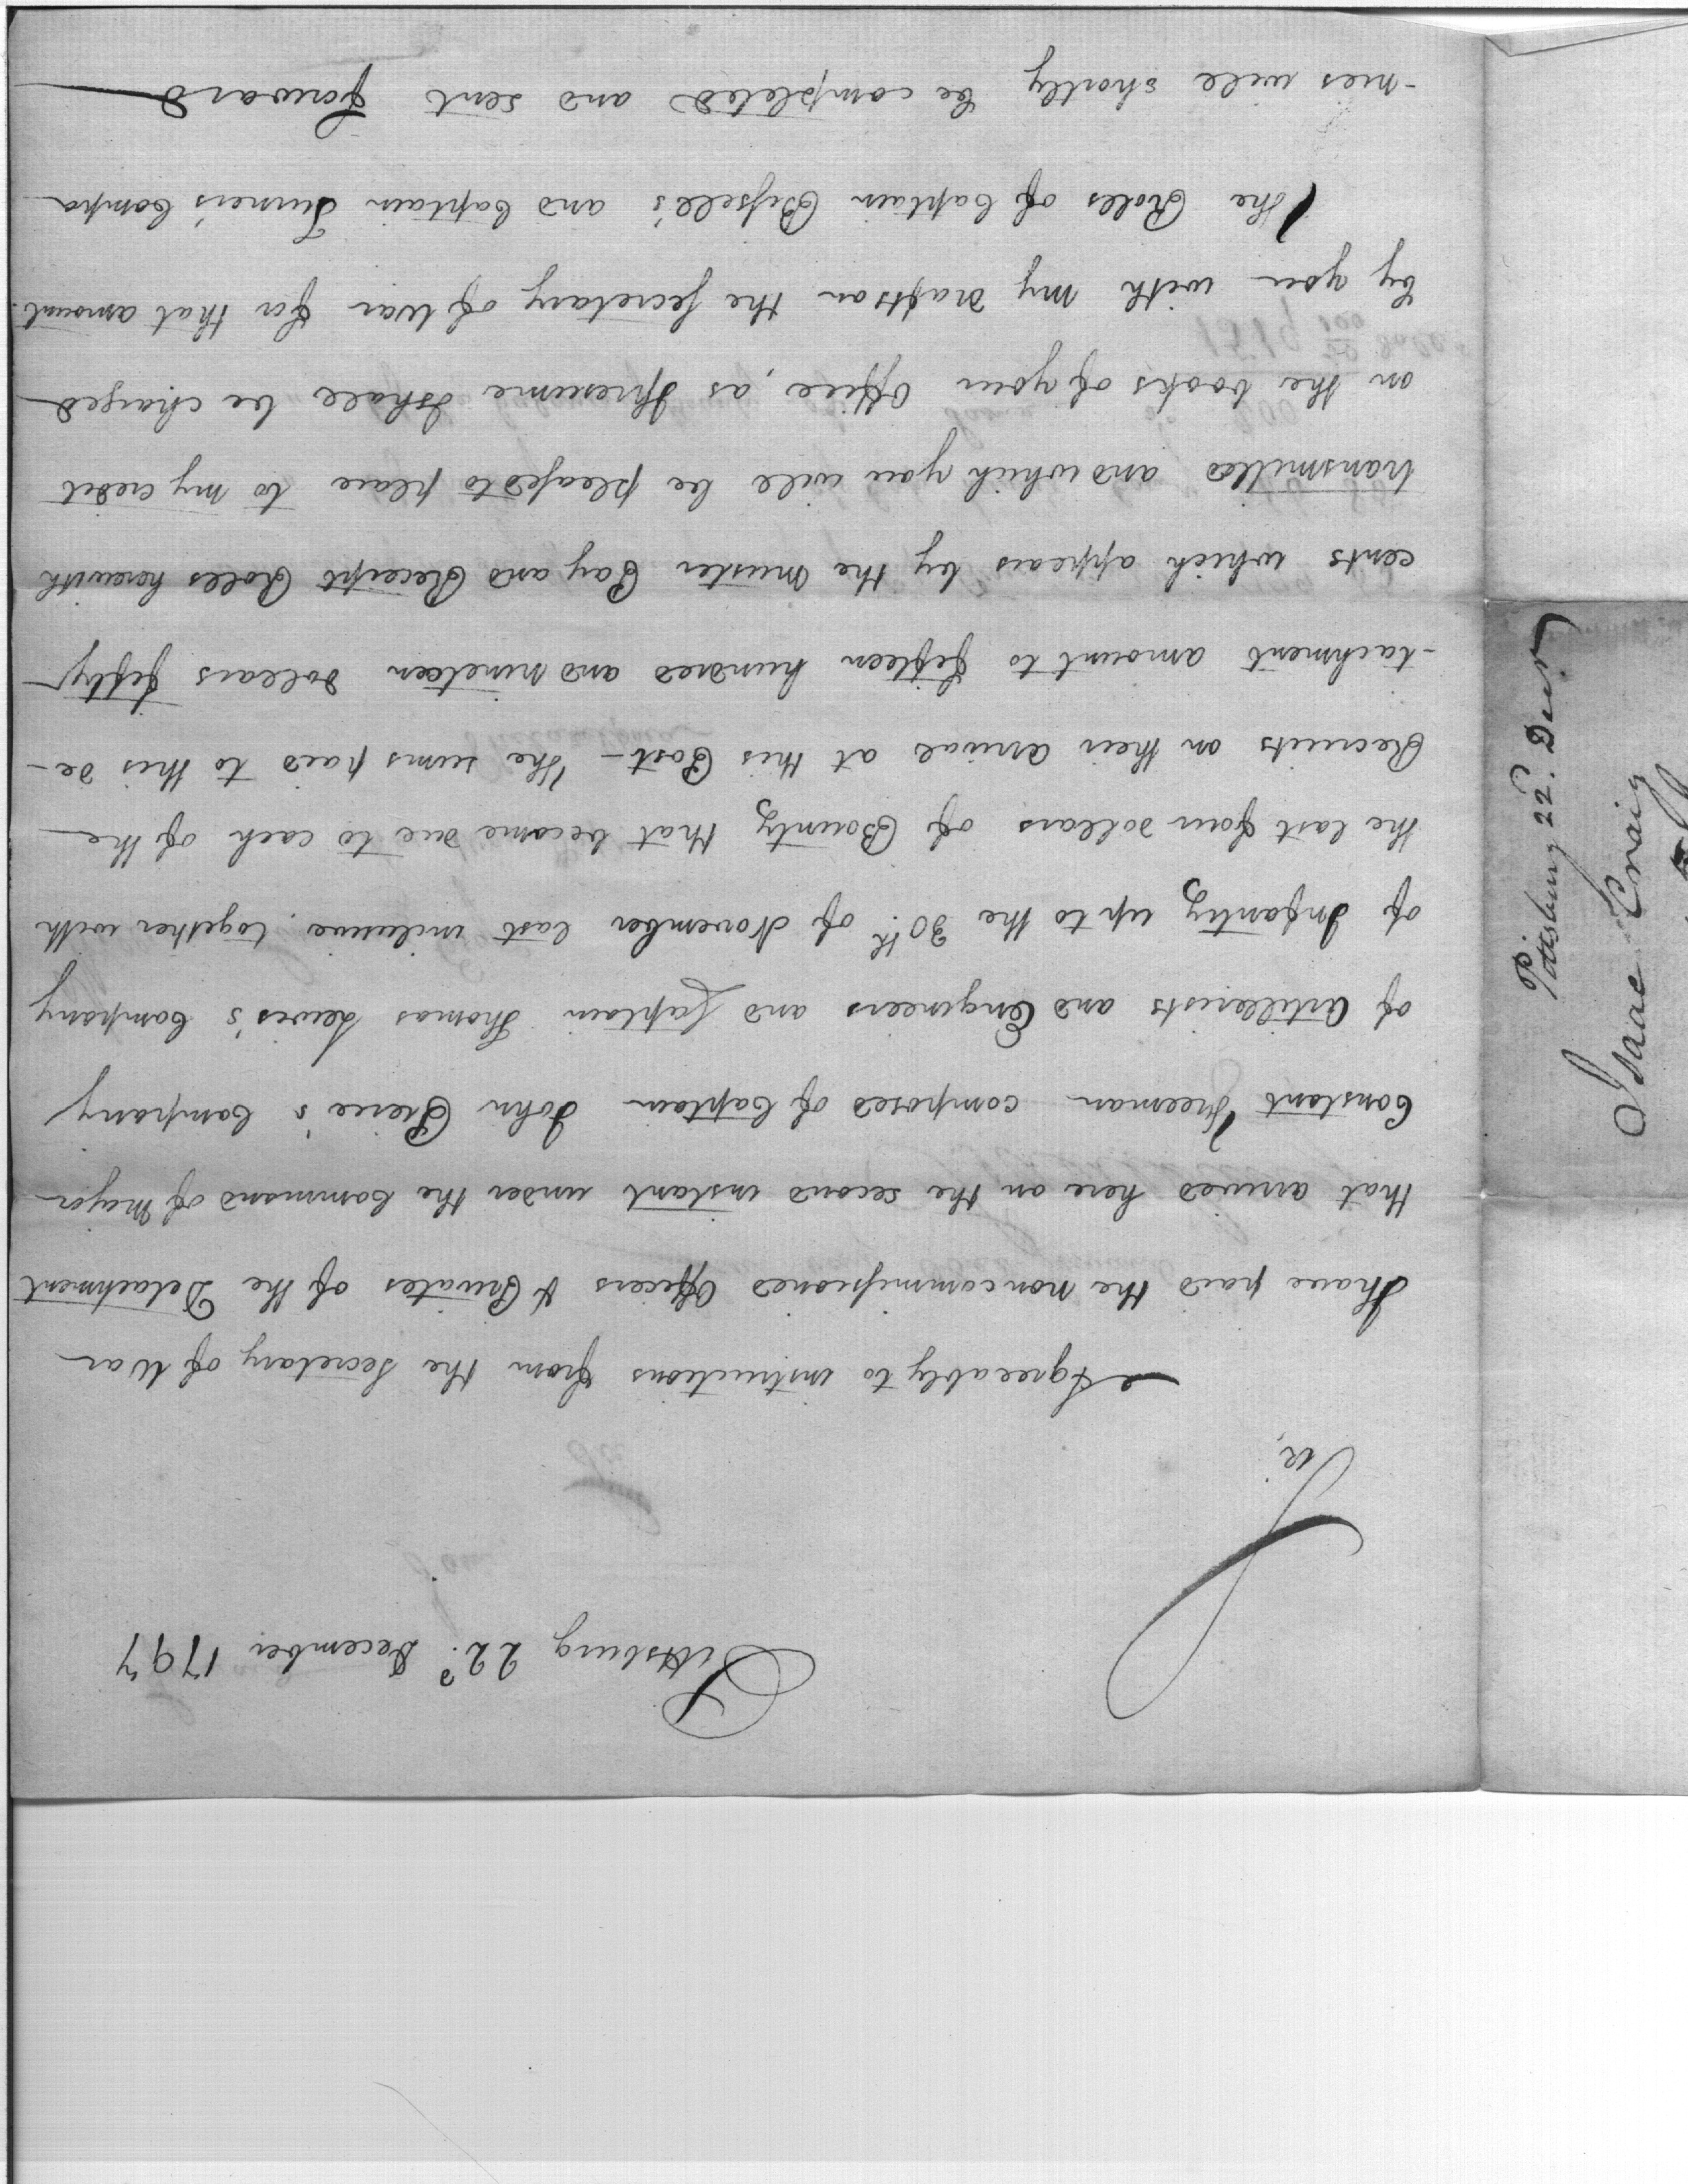 Pittsburg 22d. December 1797
Sir,
Agreeably to instructions from the Secretary of War
I have paid the noncommissioned Officers & Privates of the Detachment
that arrived here on the second instant under the Command of Major
Constant Freeman composed of Captain John Pierce's Company
of Artillerists and Engineers and Captain Thomas Lewis's Company
of Infantry up to the 30th. of November last inclusive, together with
the last four dollars of Bounty that became due to each of the
Recruits on their arrival at this Post - The sums paid to this de-
-tachment amount to fifteen hundred and nineteen dollars fifty
cents which appears by the Muster Pay and Receipt Rolls herewith
transmitted and which you will be pleased to place to my credit
on the books of your Office, as I presume I shall be charged
by you with my drafts on the Secretary of War for that amount.
The Rolls of Captain Bissell's and Captain Turner's Compa
-nies will shortly be completed and sent forward
Pittsburg 22d. Decr.
Isaac Craig